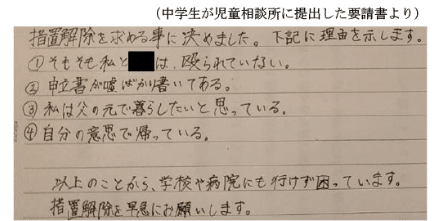 (中学生が児童相談所に提出した要請書より)
措置解除を求める事に決めました。下記に理由を示します。
①そもそも私と は、殴られていない。
②申立書が嘘ばかり書いてある。
③私は父の元で暮らしたいと思っている。
④自分の意思で帰っている。
以上のことから、学校や病院にも行けず困っています。
措置解除を早急にお願いします。